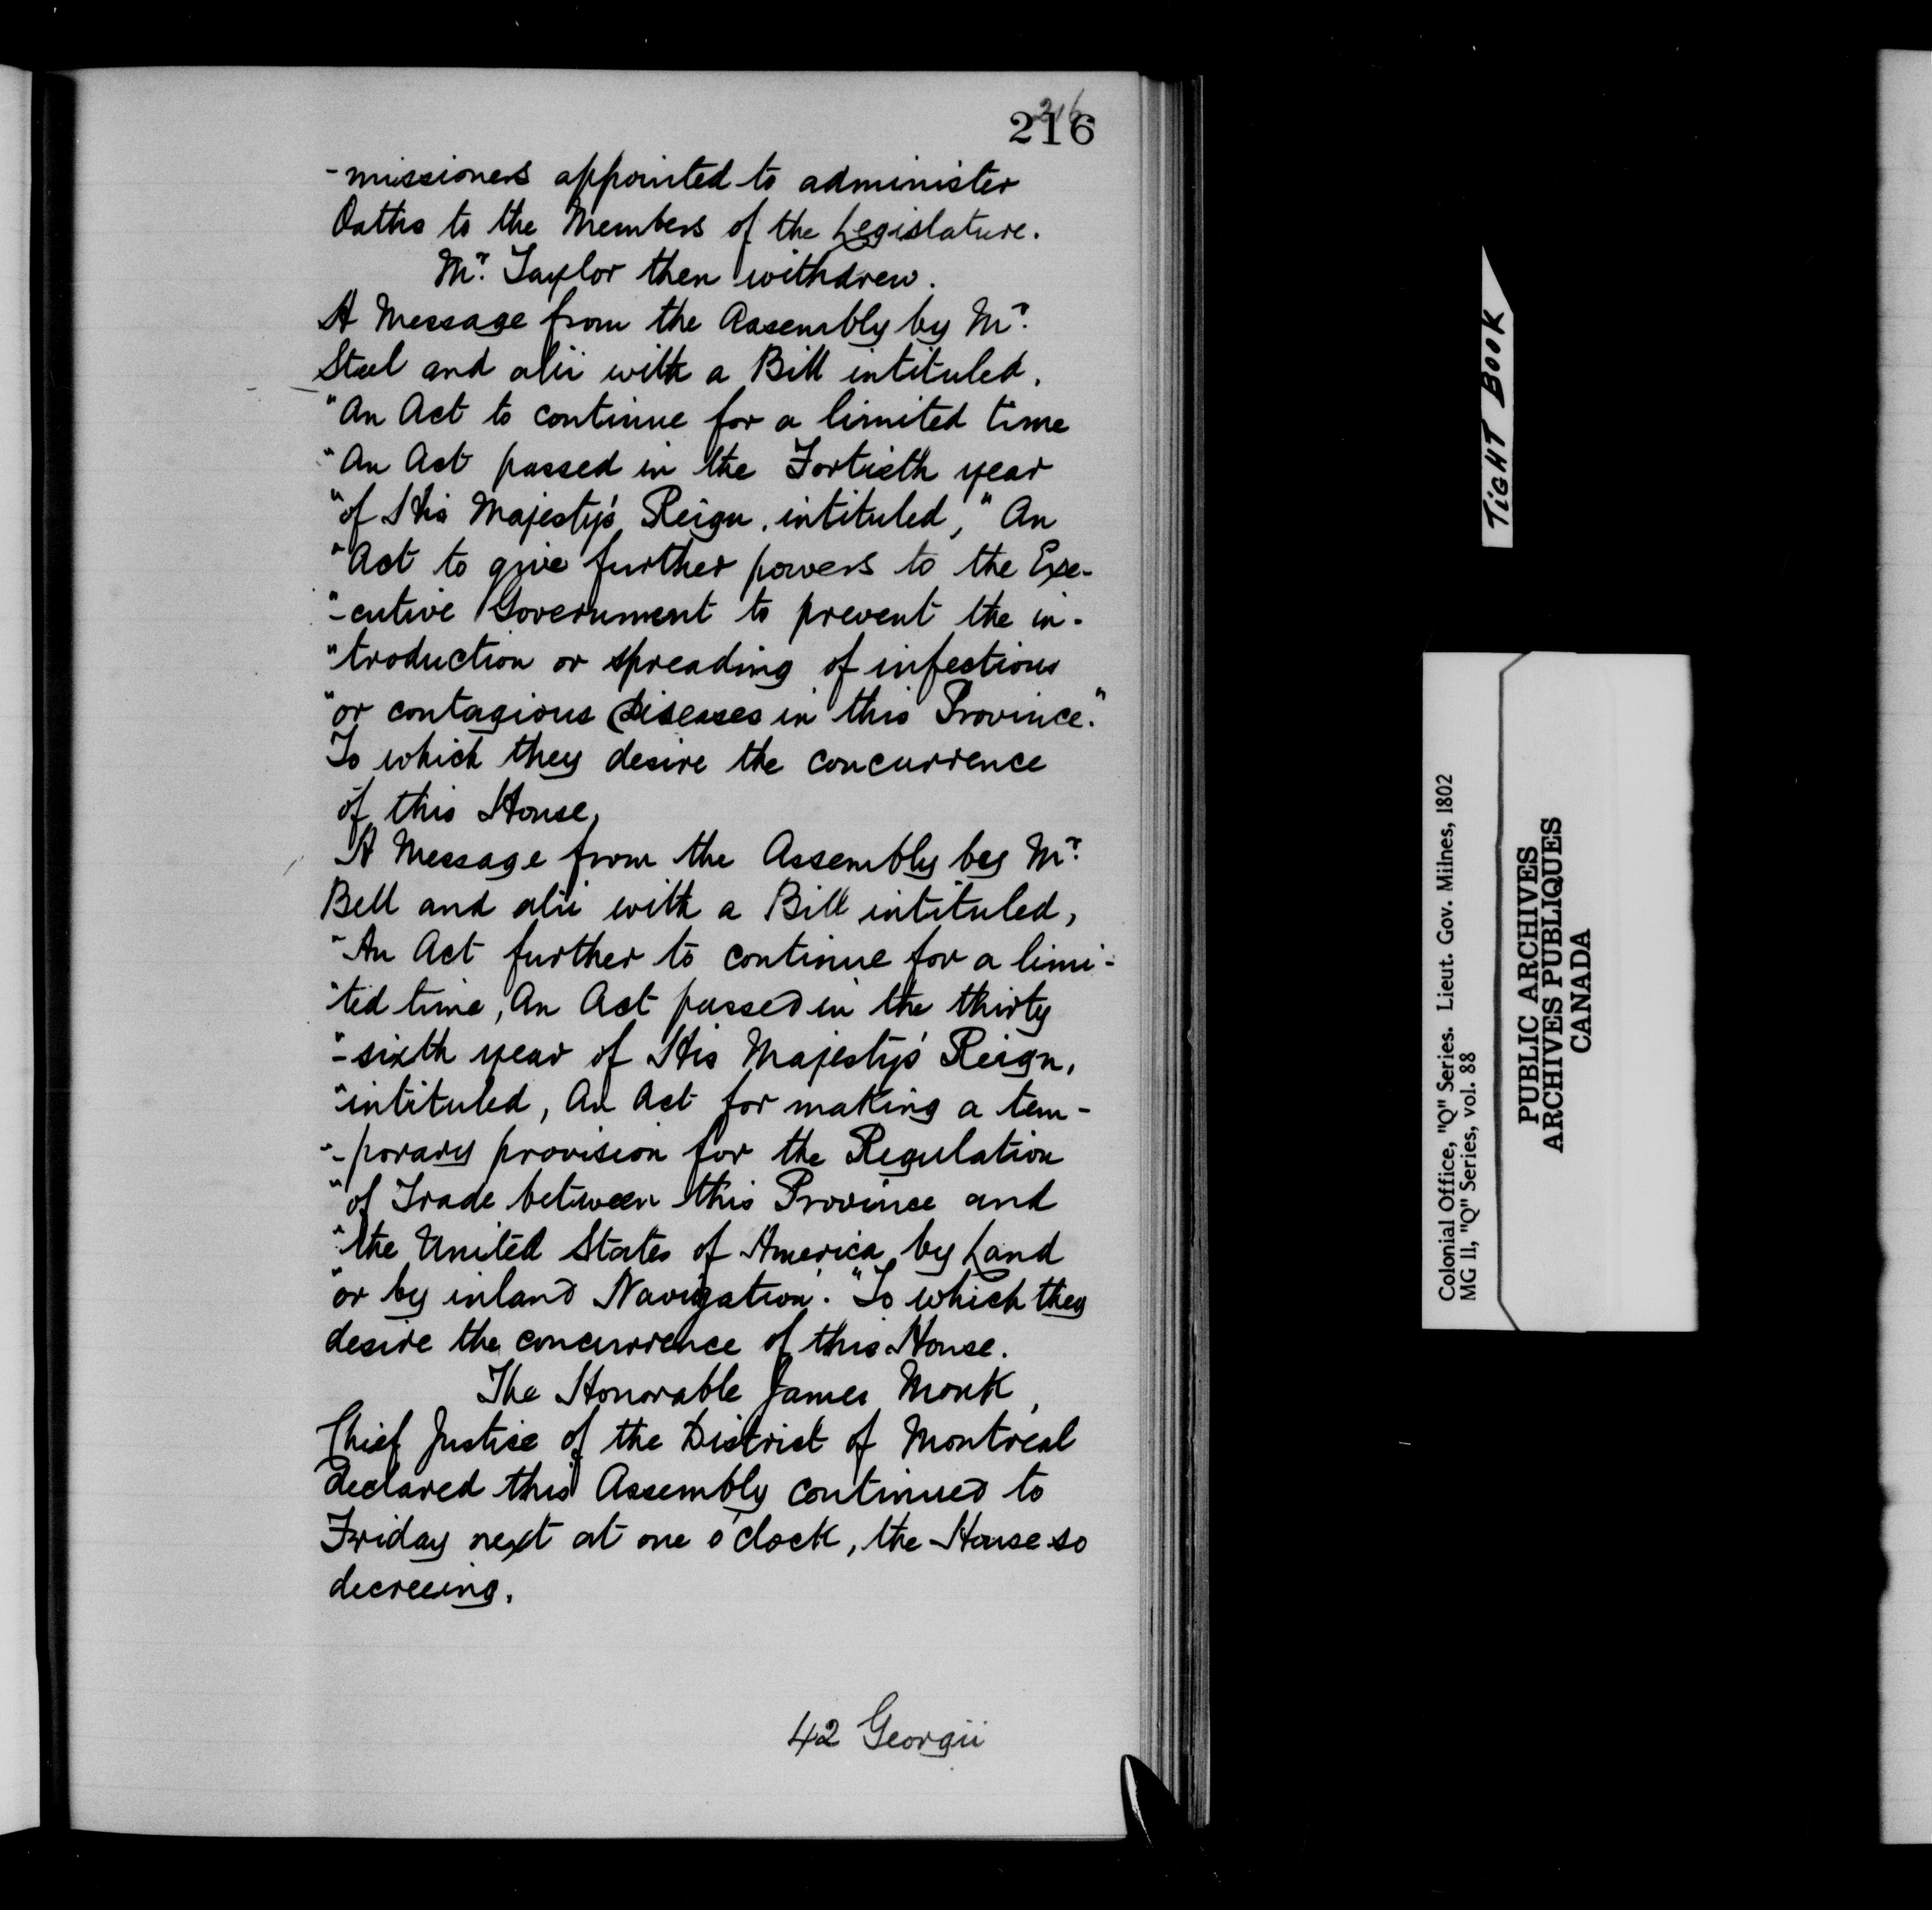 216
216
-missioners appointed to administer
Oaths to the Members of the Legislature.
Mr. Taylor then withdrew.
A Message from the Assembly by Mr.
Steel and alii with a Bill intituled,
"An Act to continue for a limited time
"An Act passed in the Fortieth year
"of His Majesty's Reign, intituled, "An
"Act to give further powers to the Exe-
"-cutive Government to prevent the in-
"troduction or spreading of infectious
"or contagious diseases in this Province."
To which they desire the concurrence
of this House,
A Message from the Assembly by Mr.
Bell and alii with a Bill intituled,
"An Act further to continue for a limi-
"ted time, An Act passed in the thirty
"-sixth year of His Majesty's Reign,
"intituled, An Act for making a tem-
"-porary provision for the Regulation
"of Trade between this Province and
"the United States of America, by Land
"or by inland Navigation." To which they
desire the concurrence of this House.
The Honorable James Monk,
Chief Justice of the District of Montreal
declared this Assembly continued to
Friday next at one o'clock, the House so
decreeing.
42 Georgii
TIGHT BOOK
Colonial Office, "Q" Series. Lieut. Gov. Milnes, 1802
MG 11, "Q" Series, vol. 88
PUBLIC ARCHIVES
ARCHIVES PUBLIQUES
CANADA